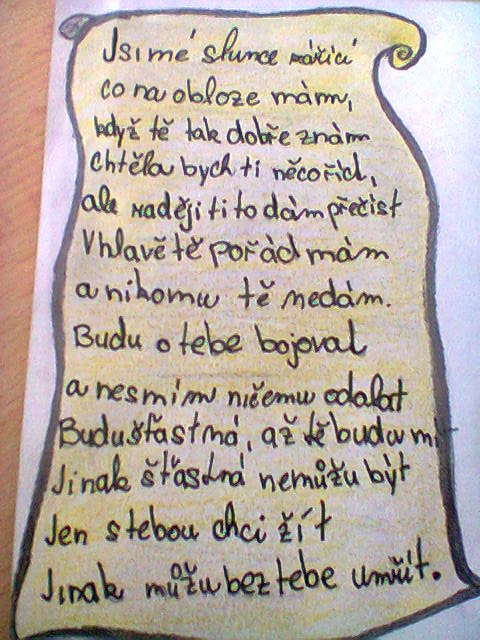 Jsi mé slunce zářicí
co na obloze mám,
když tě tak dobře znám
Chtěla bych ti něco říct,
ale raději ti to dám přečist
V hlavě tě pořád mám
a nikomu tě nedám.
Budu o tebe bojovat
a nesmím ničemu odolat
Budu šťastná, až tě budu mít
Jinak šťastná nemůžu být
Jen s tebou chci žít
Jinak můžu bez tebe umřít.